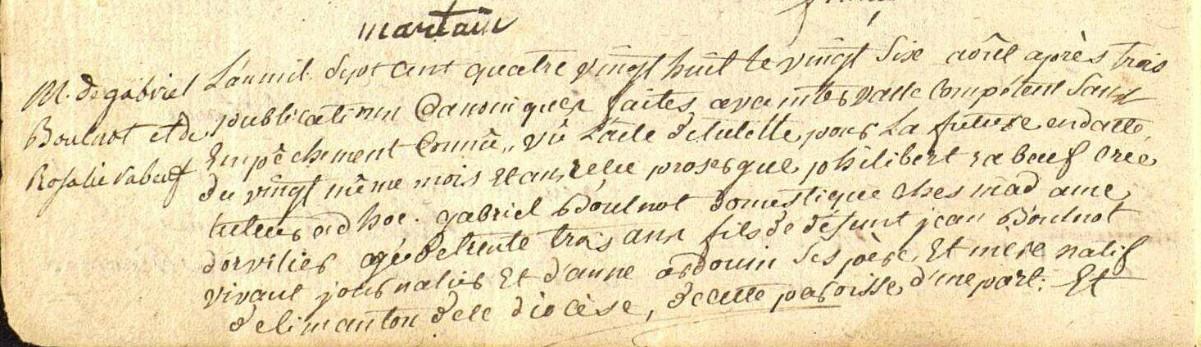 martain
M. de gabriel L'an mil sept cent quatre vingt huit le vingt six août après trois
Boulnot et de publications Canoniques faites avec intervalle compétent sans
Rosalie rabeuf Empêchement Connû, vû L'acte detutelle, pour La future endatte,
du vingt même mois Et an, reçue prosesque philibert rabeuf Crée
tuteur ad hoc. gabriel Boulnot domestique Ches madame
dorvilier agé detrente trois ans fils de défunt jean Boulnot
vivant journalier Et d'anne ardouin Ses père Et mere natif
de limanton de ce diocèse, decette paroisse d'une part. Et